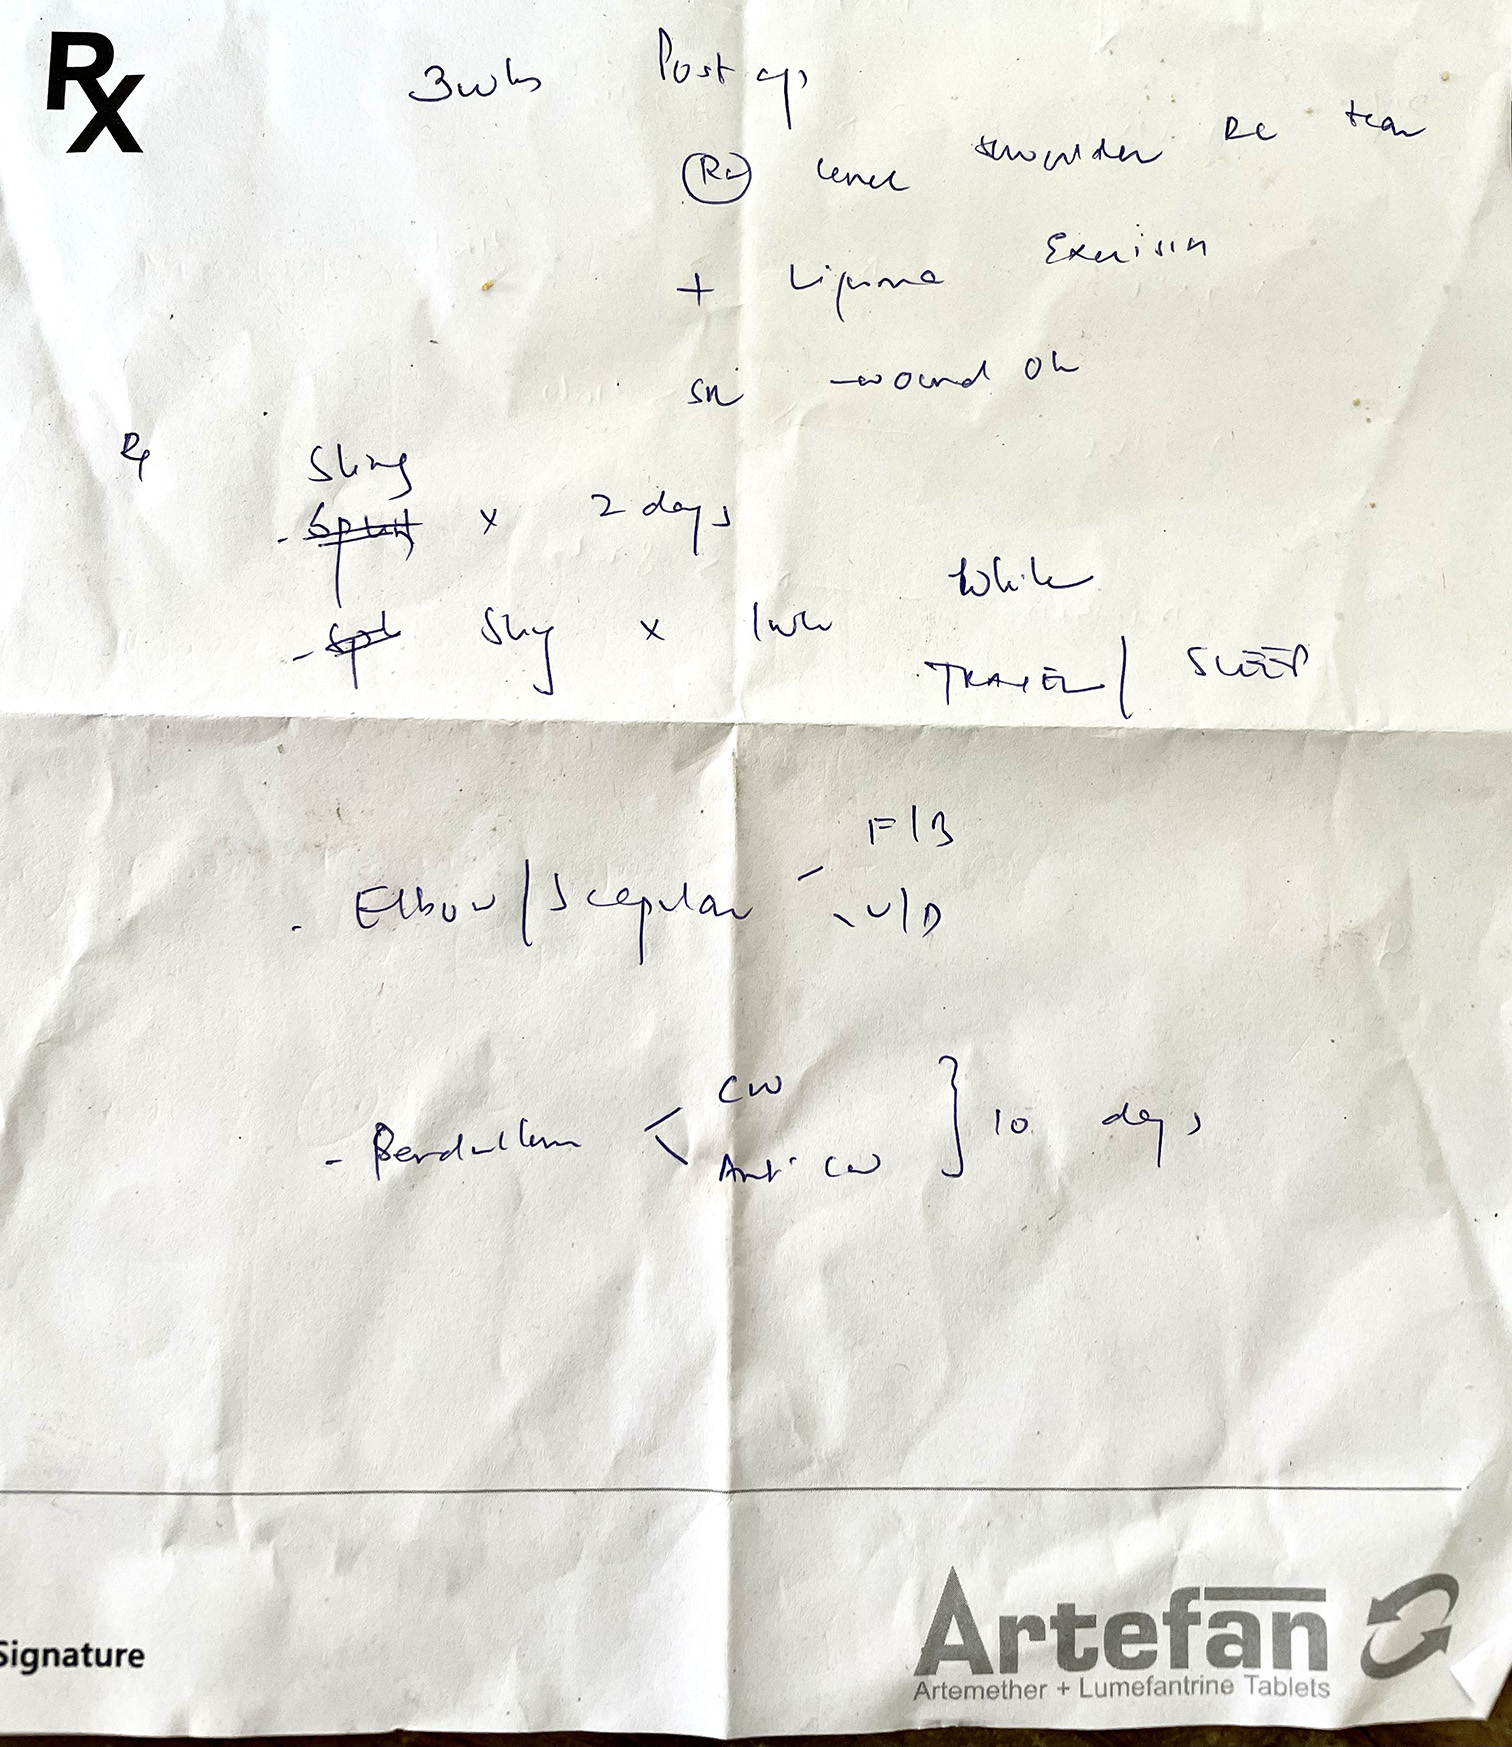 Rx
3wks Post op
Rt shoulder RC tear
+ Lipoma Excision
wound ok
Rx Sling
- x 2 days
- Sling x 1wk While
TRAVEL / SLEEP
F/B
- Elbow / Scapular
U/D
CW
- Pendullum } 10 days
Anti CW
Signature
Artefan
Artemether + Lumefantrine Tablets